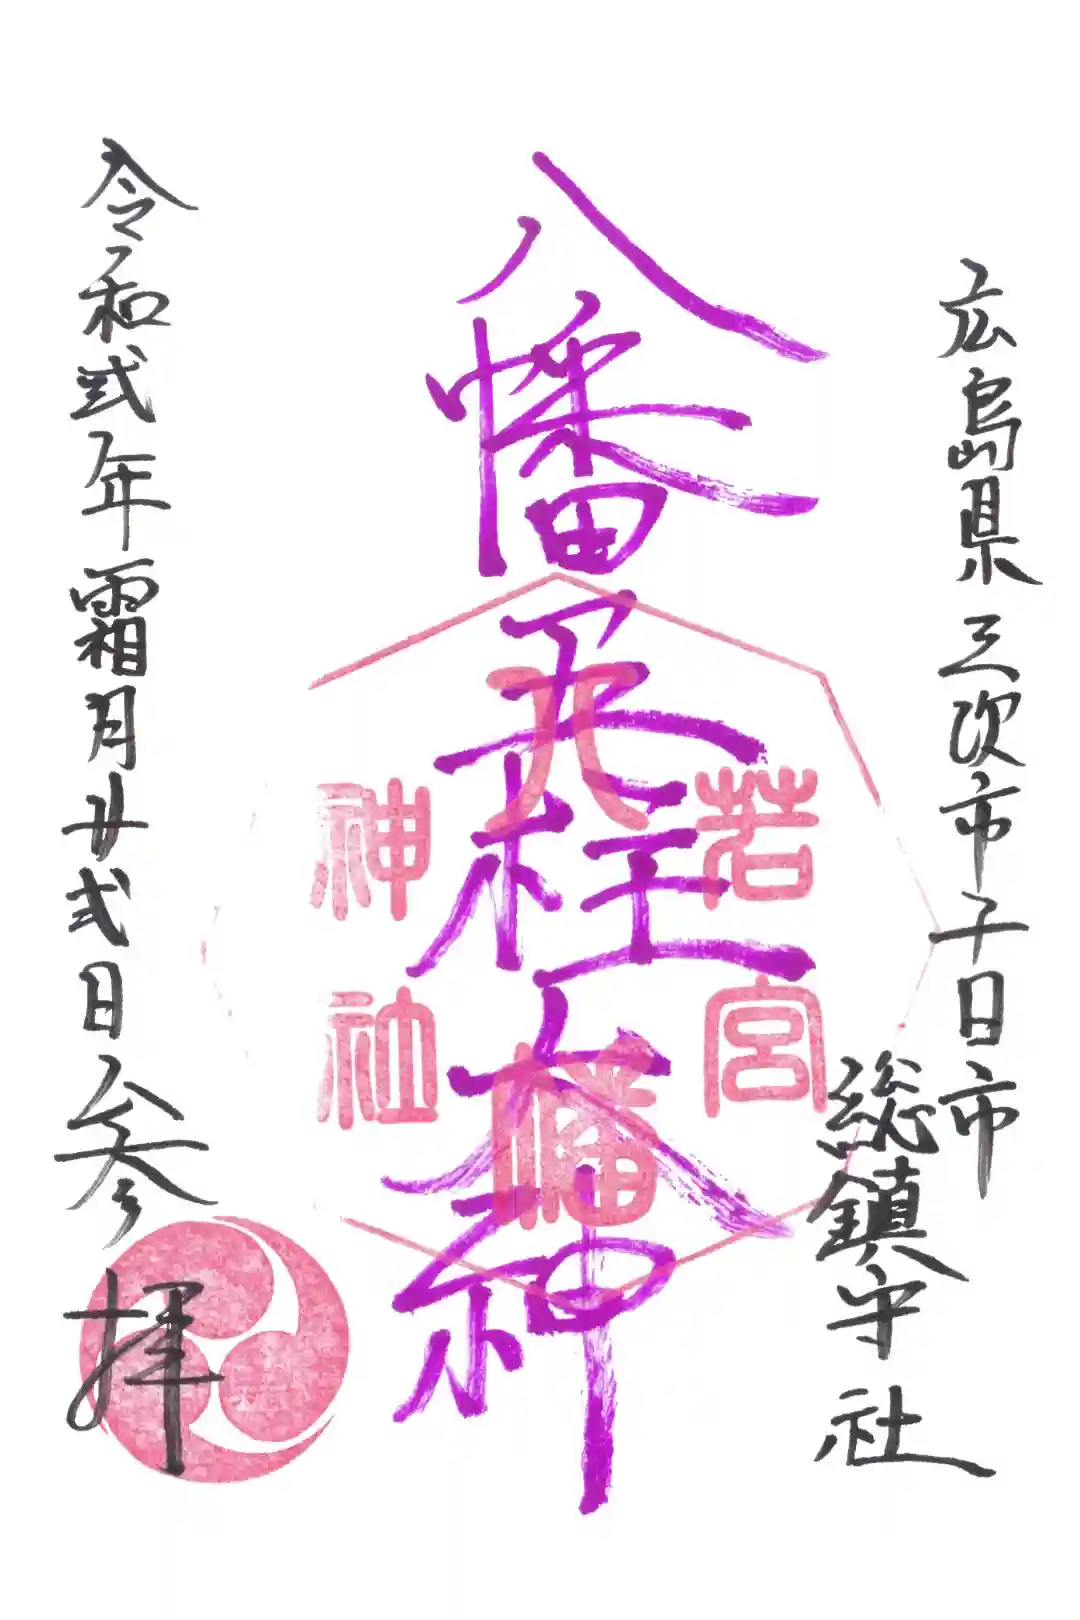 広島県三次市十日市
総鎮守社
八幡五柱大神
若宮
八幡
神社
令和弐年霜月廿弐日参拝